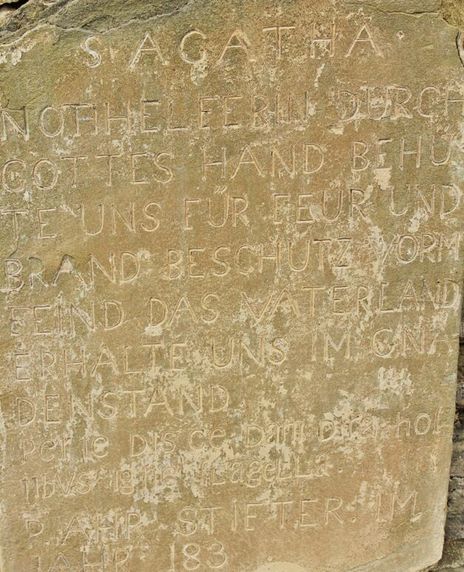 S AGATHA
NOTHHELFERIN DURCH
GOTTES HAND BEHÜ
TE UNS FÜR FEUR UND
BRAND BESCHÜTZ VORM
FEIND DAS VATERLAND
ERHALTE UNS IM GNA
DENSTAND
P. AHR. STIFTER. IM
JAHR 183